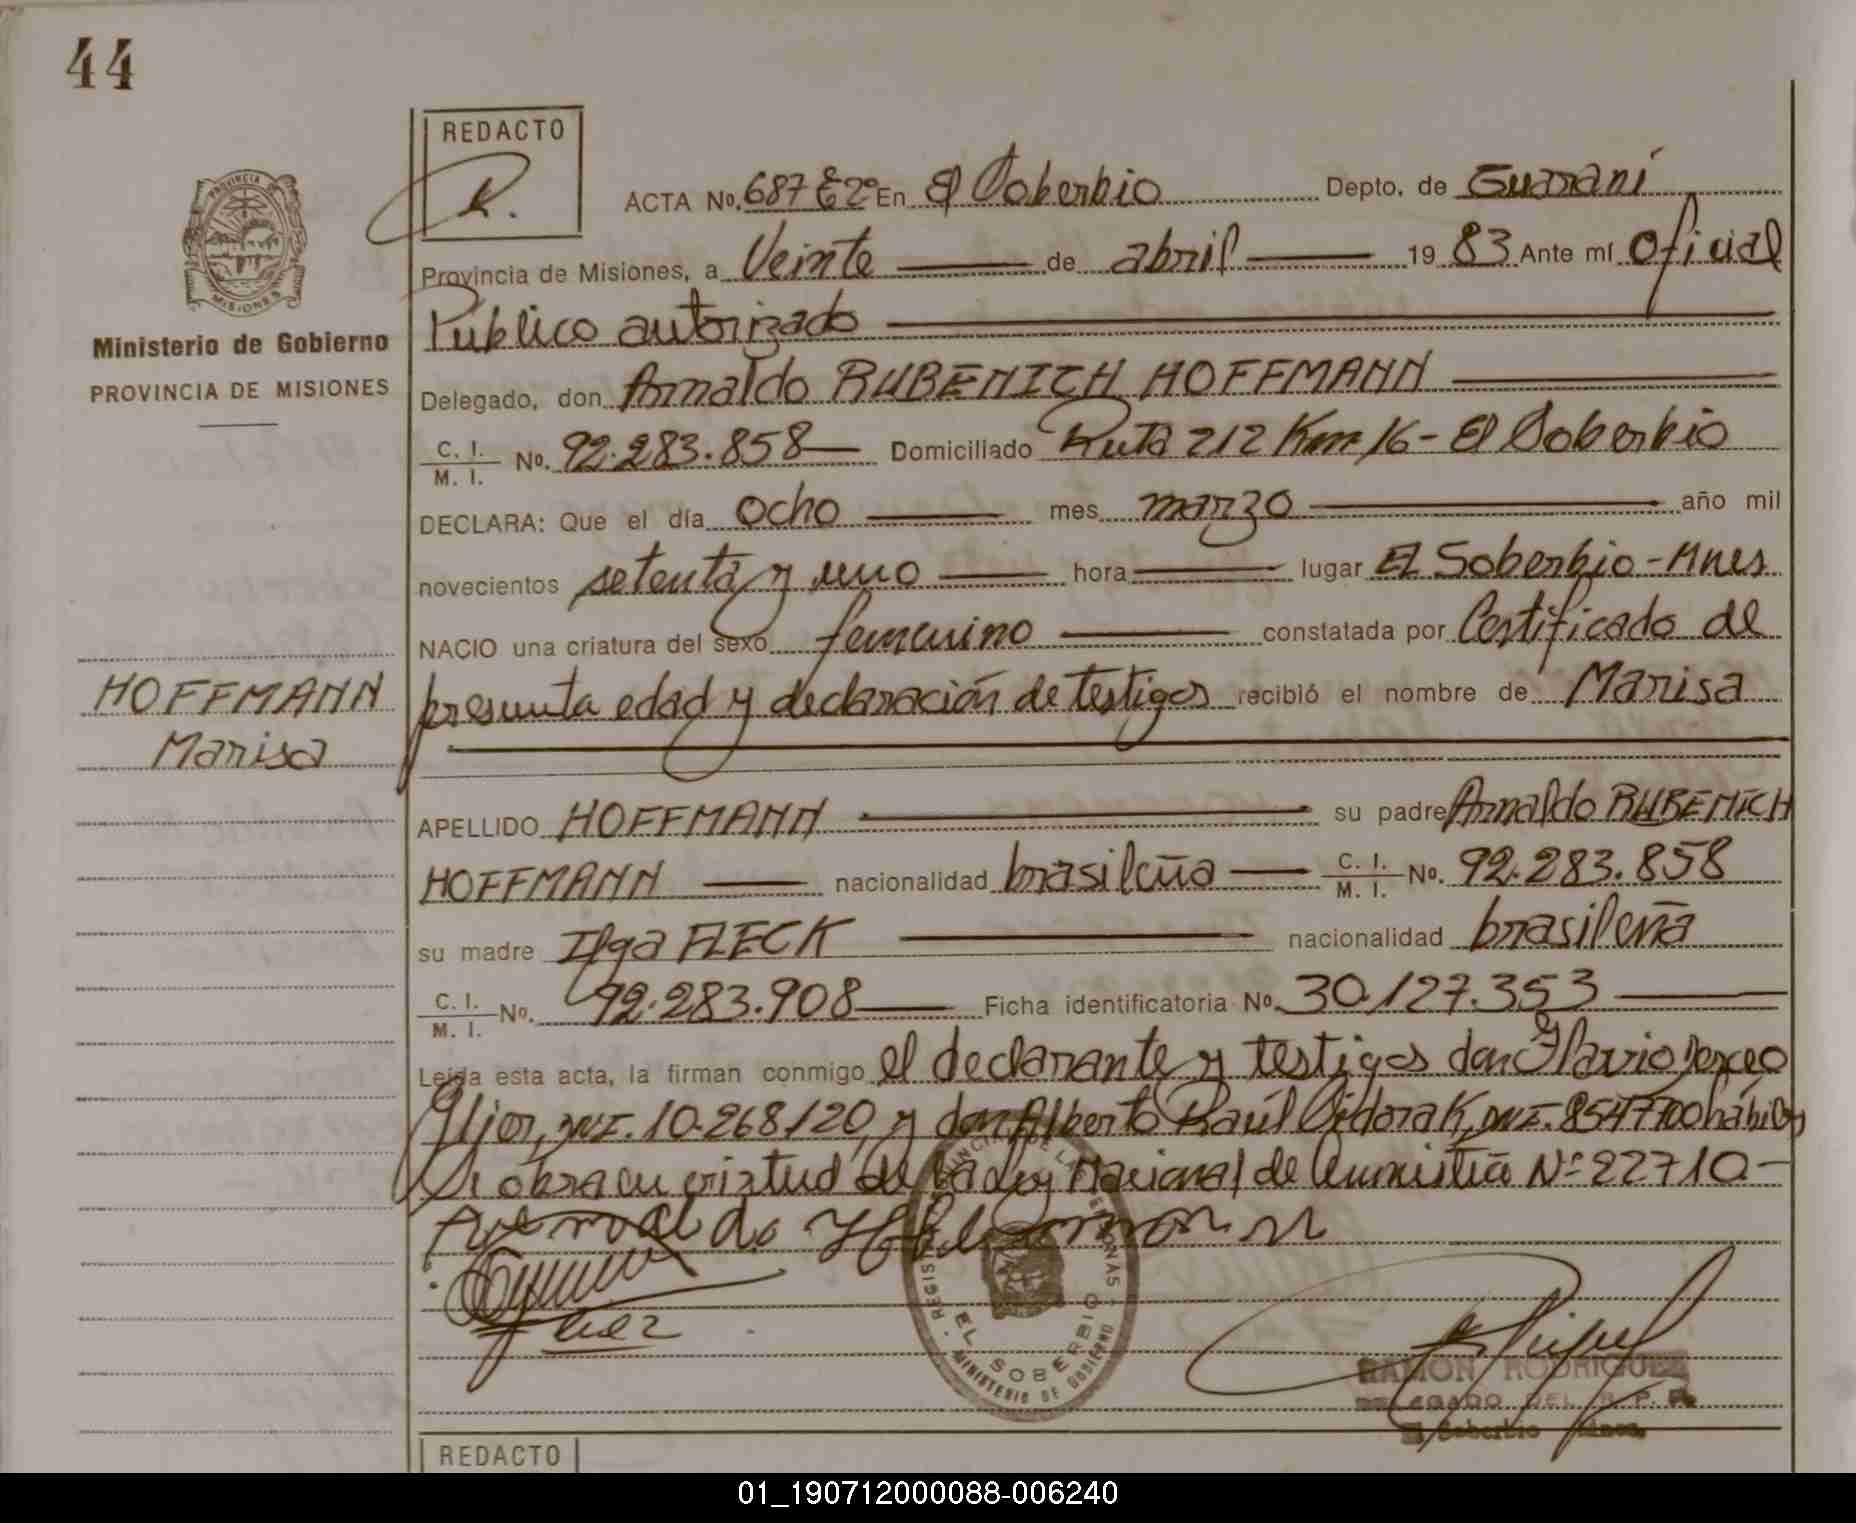 44
REDACTO
R.
PROVINCIA DE
MISIONES
Ministerio de Gobierno
PROVINCIA DE MISIONES
ACTA Nº 687 E 2º En El Soberbio Depto. de Guaraní
Provincia de Misiones, a Veinte de abril 19 83 Ante mí Oficial
Publico autorizado
Delegado, don Arnaldo RUBENICH HOFFMANN
C. I. M. I. Nº. 92.283.858 Domiciliado Ruta 212 Km 16 - El Soberbio
DECLARA: Que el día ocho mes marzo año mil
novecientos setenta y uno hora lugar El Soberbio - Mnes
NACIO una criatura del sexo femenino constatada por Certificado de
HOFFMANN
Marisa
presunta edad y declaración de testigos recibió el nombre de Marisa
APELLIDO HOFFMANN su padre Arnaldo RUBENICH
HOFFMANN nacionalidad brasileña C. I. M. I. Nº. 92.283.858
su madre Ilga FLECK nacionalidad brasileña
C. I. M. I. Nº. 92.283.908 Ficha identificatoria Nº 30.127.353
Leída esta acta, la firman conmigo el declarante y testigos don Flavio
DNI. 10.268.120, y don Alberto Raúl DNI. 8547700 hábiles
Se obra en virtud de la Ley Nacional de Amnistía Nº 22710 -
EL SOBERBIO
MINISTERIO DE GOBIERNO
RAMON RODRIGUEZ
DELEGADO DEL R. P. P.
El Soberbio Mnes.
REDACTO
01_190712000088-006240